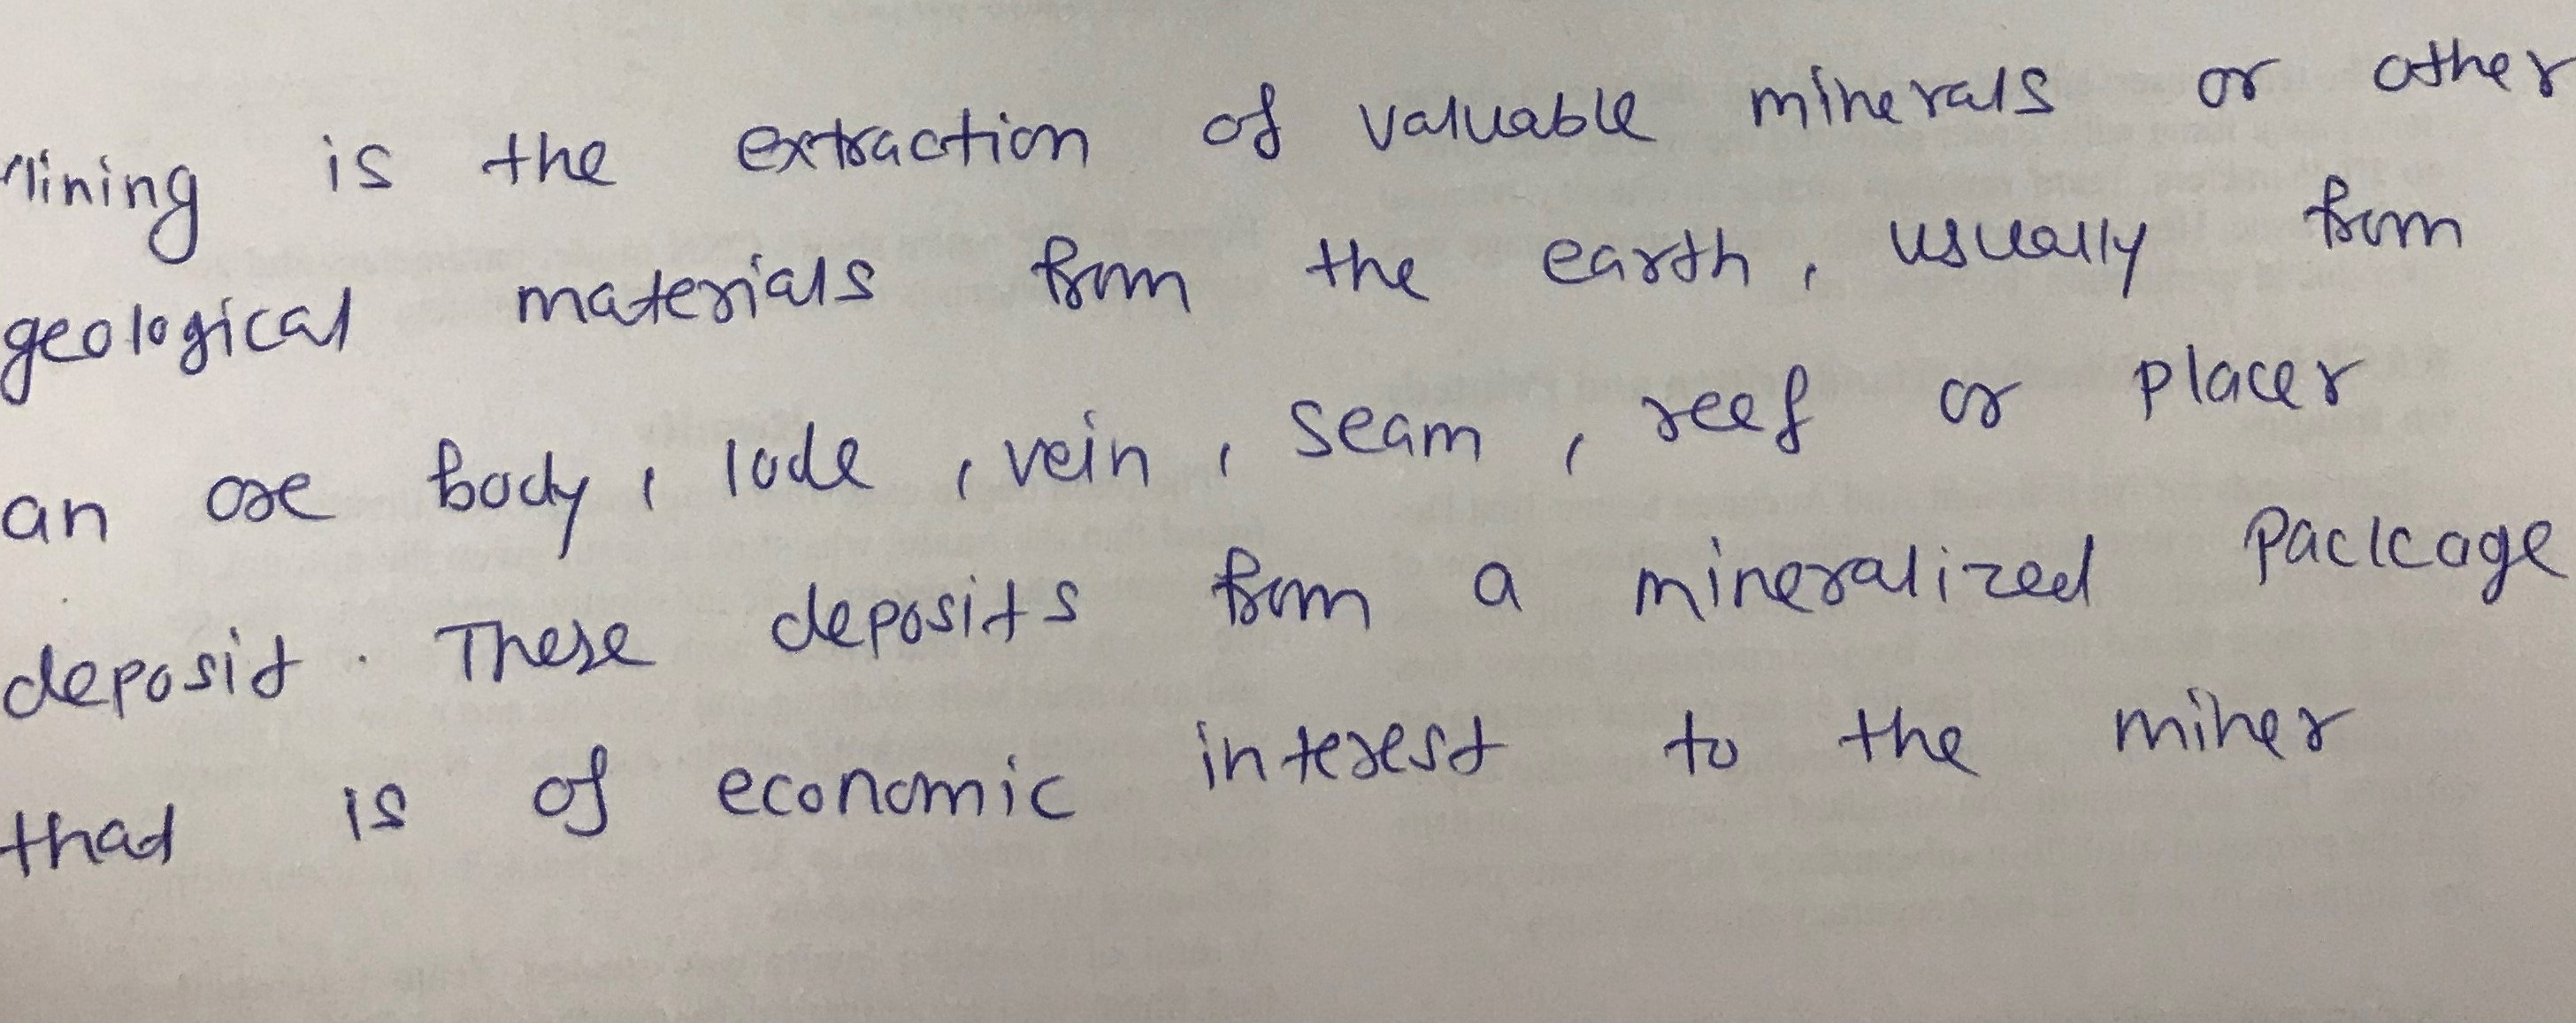 Mining is the extraction of valuable minerals or other
geological materials from the earth, usually from
an ore body, lode, vein, seam, reef or placer
deposit. These deposits from a mineralized package
that is of economic interest to the miner